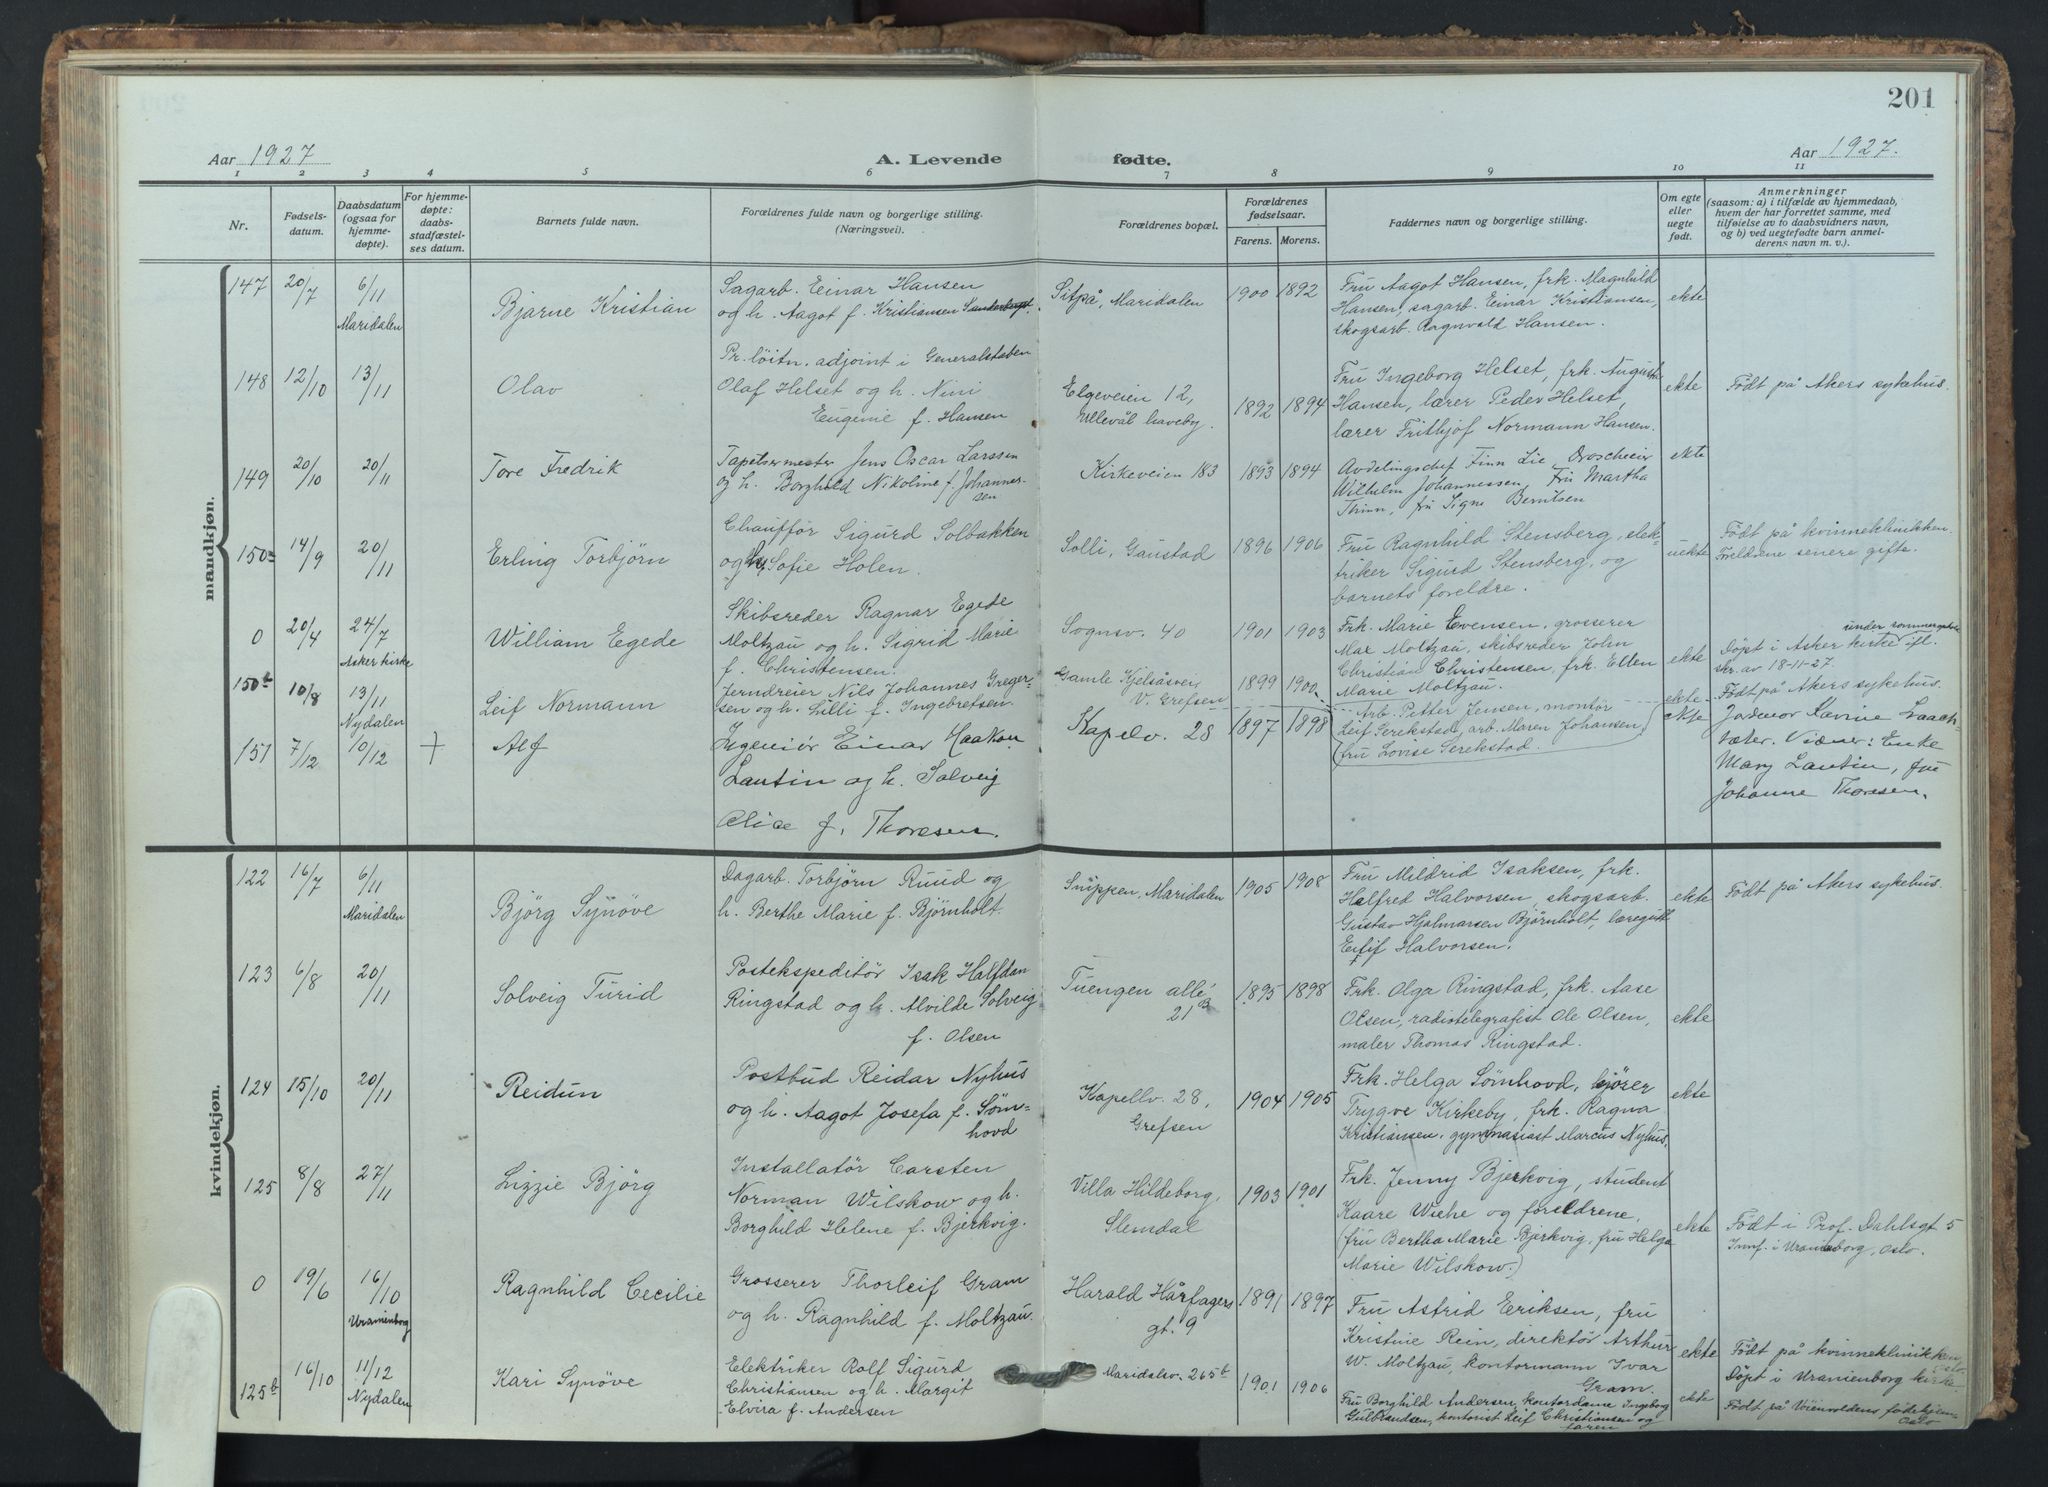 201
Aar 1927
A. Levende
fødte.
Aar 1927.
1 2 3 4 5 6 7 8 9 10 11
Nr.
Fødsels-
datum.
Daabsdatum
(ogsaa for
hjemme-
døpte).
For hjemme-
døpte:
daabs-
stadfæstel-
ses datum.
Barnets fulde navn.
Forældrenes fulde navn og borgerlige stilling.
(Næringsvei).
Forældrenes bopæl.
Forældrenes
fødselsaar.
Farens. Morens.
Faddernes navn og borgerlige stilling.
Om egte
eller
uegte
født.
Anmerkninger
(saasom: a) i tilfælde av hjemmedaab,
hvem der har forrettet samme, med
tilføielse av to daabsvidners navn,
og b) ved uegtefødte barn anmel-
derens navn m. v.).
mandkjøn.
147 20/7 6/11
Maridalen
Bjarne Kristian
Sagarb. Einar Hansen
og h. Aagot f. Kristiansen
Sitpå, Maridalen
1900 1892
Fru Aagot Hansen, frk. Magnhild
Hansen, sagarb. Einar Kristiansen,
skogsarb. Ragnvald Hansen.
ekte
148 12/10 13/11
Olav
Pr. løitn. adjoint i Generalstaben
Olaf Helset og h. Nini
Eugenie f. Hansen
Elgeveien 12,
Ullevål haveby.
1892 1894
Fru Ingeborg Helset, frk. Augusta
Hansen, lærer Peder Helset,
lærer Frithjof Normann Hansen.
ekte
Født på Akers sykehus.
149 20/10 20/11
Tore Fredrik
Tapetsermester Jens Oscar Larssen
og h. Borghild Nikoline f. Johannes-
sen
Kirkeveien 183
1893 1894
Avdelingschef Finn Lie, Droscheeier
Wilhelm Johannessen, Fru Martha
Thinn, fru Signe Berntsen
ekte
150a 14/9 20/11
Erling Torbjørn
Chauffør Sigurd Solbakken
og Sofie Holen.
Solli, Gaustad
1896 1906
Fru Ragnhild Stensberg, elek-
triker Sigurd Stensberg, og
barnets foreldre.
uekte
Født på kvinneklinikken.
Foreldrene senere gifte.
0 20/4 24/7
Asker kirke
William Egede
Skibsreder Ragnar Egede
Moltzau og h. Sigrid Marie
f. Christensen.
Sognsv. 40
1901 1903
Frk. Marie Evensen, grosserer
Max Moltzau, skibsreder John
Christian Christensen, frk. Ellen
Marie Moltzau.
ekte
under
Døpt i Asker kirke ifl.
skr. av 18-11-27.
150b 10/8 13/11
Nydalen
Leif Normann
Jerndreier Nils Johannes Greger-
sen og h. Lilli f. Ingebretsen.
Gamle Kjelsåsvei
V. Grefsen
1899 1900
Arb. Petter Jensen, montør
Leif Serekstad, arb. Maren Johansen,
fru Lovise Serekstad.
ekte
Født på Akers sykehus.
151 7/12 10/12 +
Alf
Ingeniør Einar Haakon
Lautin og h. Solveig
Alice f. Thoresen.
Kapelv. 28
1897 1898
ekte
Jordmor
Vidner:
Mary Lautin, fru
Johanne Thoresen.
kvindekjøn.
122 16/7 6/11
Maridalen
Bjørg Synøve
Dagarb. Torbjørn Ruud og
h. Berthe Marie f. Bjørnholt.
Snippen, Maridalen
1905 1908
Fru Mildrid Isaksen, frk.
Halfred Halvorsen, skogsarb.
Gustav Hjalmarsen Bjørnholt, læregutt
Halvorsen.
ekte
Født på Akers sykehus.
123 6/8 20/11
Solveig Turid
Postekspeditør Isak Halfdan
Ringstad og h. Alvilde Solveig
f. Olsen
Tuengen allé
21 B
1895 1898
Frk. Olga Ringstad, frk. Aase
Olsen, radiotelegrafist Ole Olsen,
maler Thomas Ringstad.
ekte
124 15/10 20/11
Reidun
Postbud Reidar Nyhus
og h. Aagot Josefa f. Søm-
hovd
Kapellv. 28,
Grefsen
1904 1905
Frk. Helga Sømhovd, kjører
Trygve Kirkeby, frk. Ragna
Kristiansen, gymnasiast Marcus Nyhus.
ekte
125 8/8 27/11
Lizzie Bjørg
Installatør Carsten
Norman Wilskow og h.
Borghild Helene f. Bjerkvig.
Villa Hildeborg,
Slemdal
1903 1901
Frk. Jenny Bjerkvig, student
Kaare Wiehe og foreldrene,
(fru Bertha Marie Bjerkvig, fru Helga
Marie Wilskow.)
ekte
Født i Prof. Dahlsgt 5
Innf. i Uranienborg, Oslo.
0 19/6 16/10
Uranienborg
Ragnhild Cecilie
Grosserer Thorleif Gram
og h. Ragnhild f. Moltzau.
Harald Hårfagers
gt. 9
1891 1897
Fru Astrid Eriksen, fru
Kristine Rein, direktør Arthur
W. Moltzau, kontormann Ivar
Gram.
ekte
Født på kvinneklinikken,
Døpt i Uranienborg kirke
125b 16/10 11/12
Nydalen
Kari Synøve
Elektriker Rolf Sigurd
Christiansen og h. Margit
Elvira f. Andersen
Maridalsv. 265b
1901 1906
Fru Borghild Andersen, kontordame Ingeborg
Gulbrandsen, kontorist Leif Christiansen og
faren
ekte
Født på Voienvoldens fødehjem
Oslo